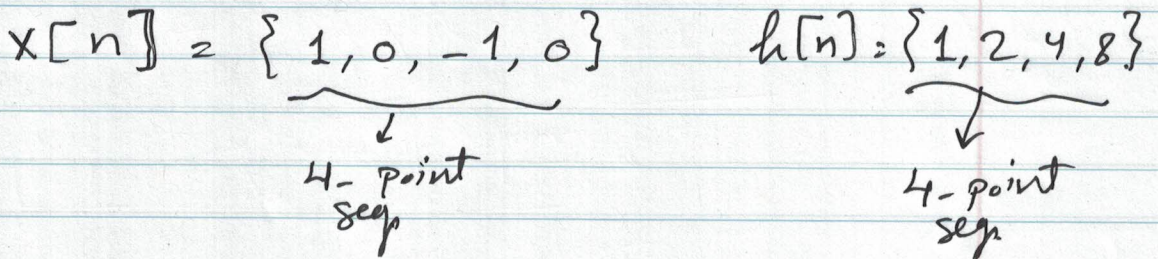 x[n] = { 1, 0, -1, 0 } h[n] = { 1, 2, 4, 8 }
4- point 4- point
seq. seq.